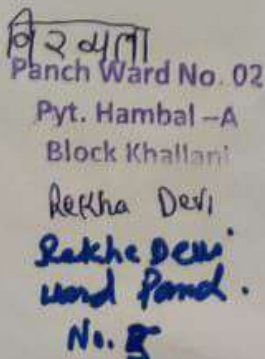 विरमला
Panch Ward No. 02
Pyt. Hambal –A
Block Khallani
Rekha Devi
Rekha Devi
word Panch.
No.